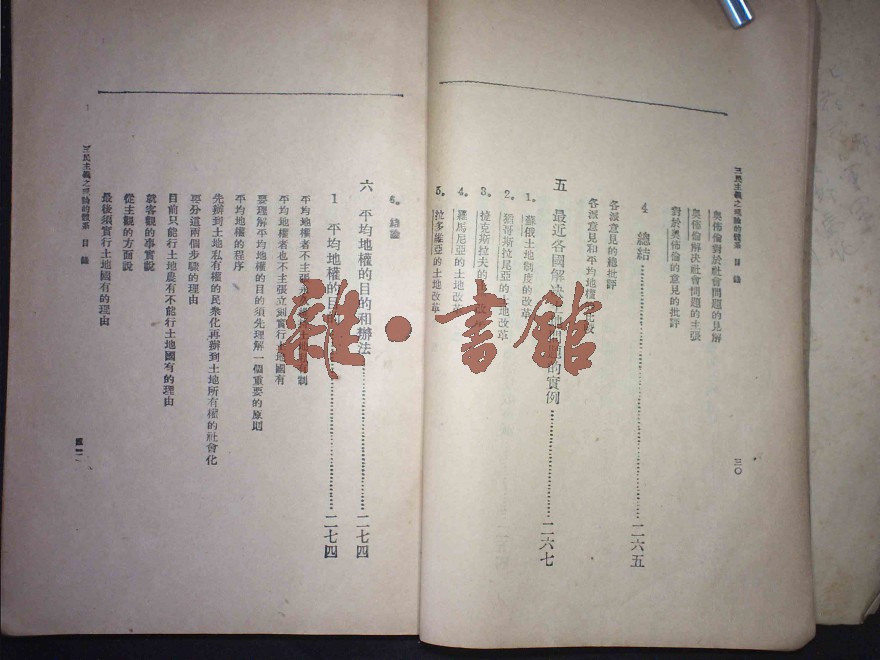 三民主義之理論的體系 目錄
三〇
奧佛倫對於社會問題的見解
奧佛倫解決社會問題的主張
對於奧佛倫的意見的批評
4 總結……二六五
各派意見的總批評
各派意見和平均地權
五 最近各國解決土地問題的實例……二六七
1. 蘇俄土地制度的改革
2. 猶哥斯拉尾亞的土地改革
3. 捷克斯拉夫的改
4. 羅馬尼亞的土地改革
5. 拉多維亞的土地改革
6. 結論
六 平均地權的目的和辦法……二七四
1 平均地權的目的……二七四
平均地權者不主張制
平均地權者也不主張立刻實行土地國有
要理解平均地權的目的須先理解一個重要的原則
平均地權的程序
先辦到土地私有權的民衆化再辦到土地所有權的社會化
要分這兩個步驟的理由
目前只能行土地農有不能行土地國有的理由
就客觀的事實說
從主觀的方面說
最後須實行土地國有的理由
三民主義之理論的體系 目錄
雜·書館